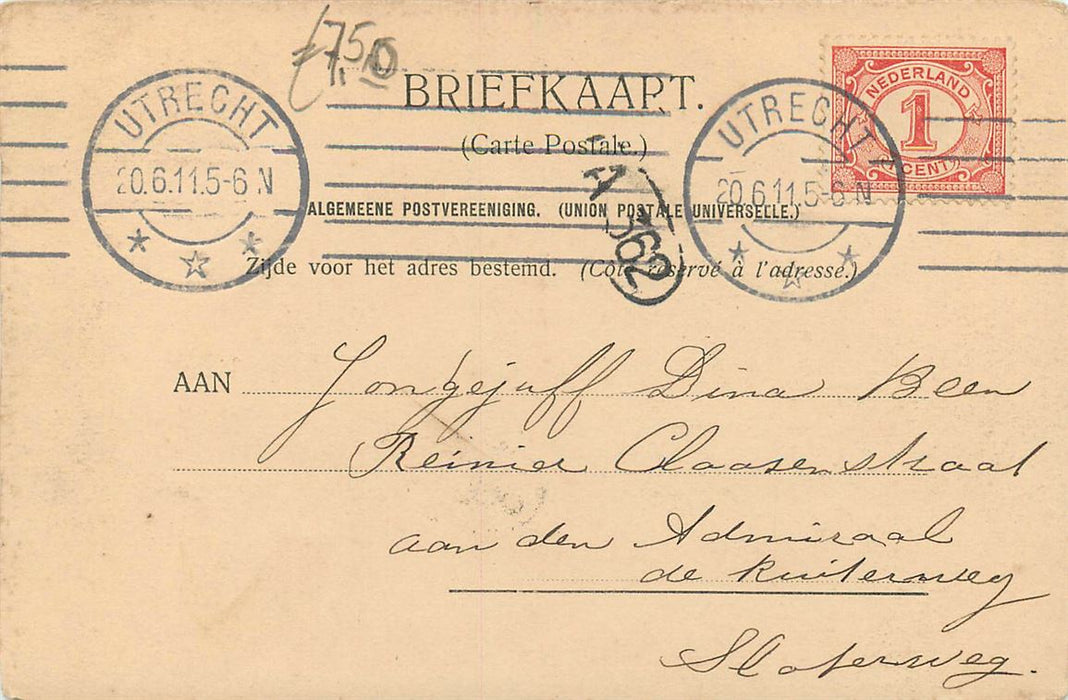 f 7,50
BRIEFKAART.
(Carte Postale.)
ALGEMEENE POSTVEREENIGING. (UNION POSTALE UNIVERSELLE.)
Zijde voor het adres bestemd. (Côté réservé à l'adresse.)
UTRECHT
20.6.11.5-6 N
UTRECHT
20.6.11.5-6 N
NEDERLAND
1
CENT
A
362
AAN Jongejuff Dina Been
Reinier Claasenstraat
aan den Admiraal
de Ruiterweg
Sloterweg.